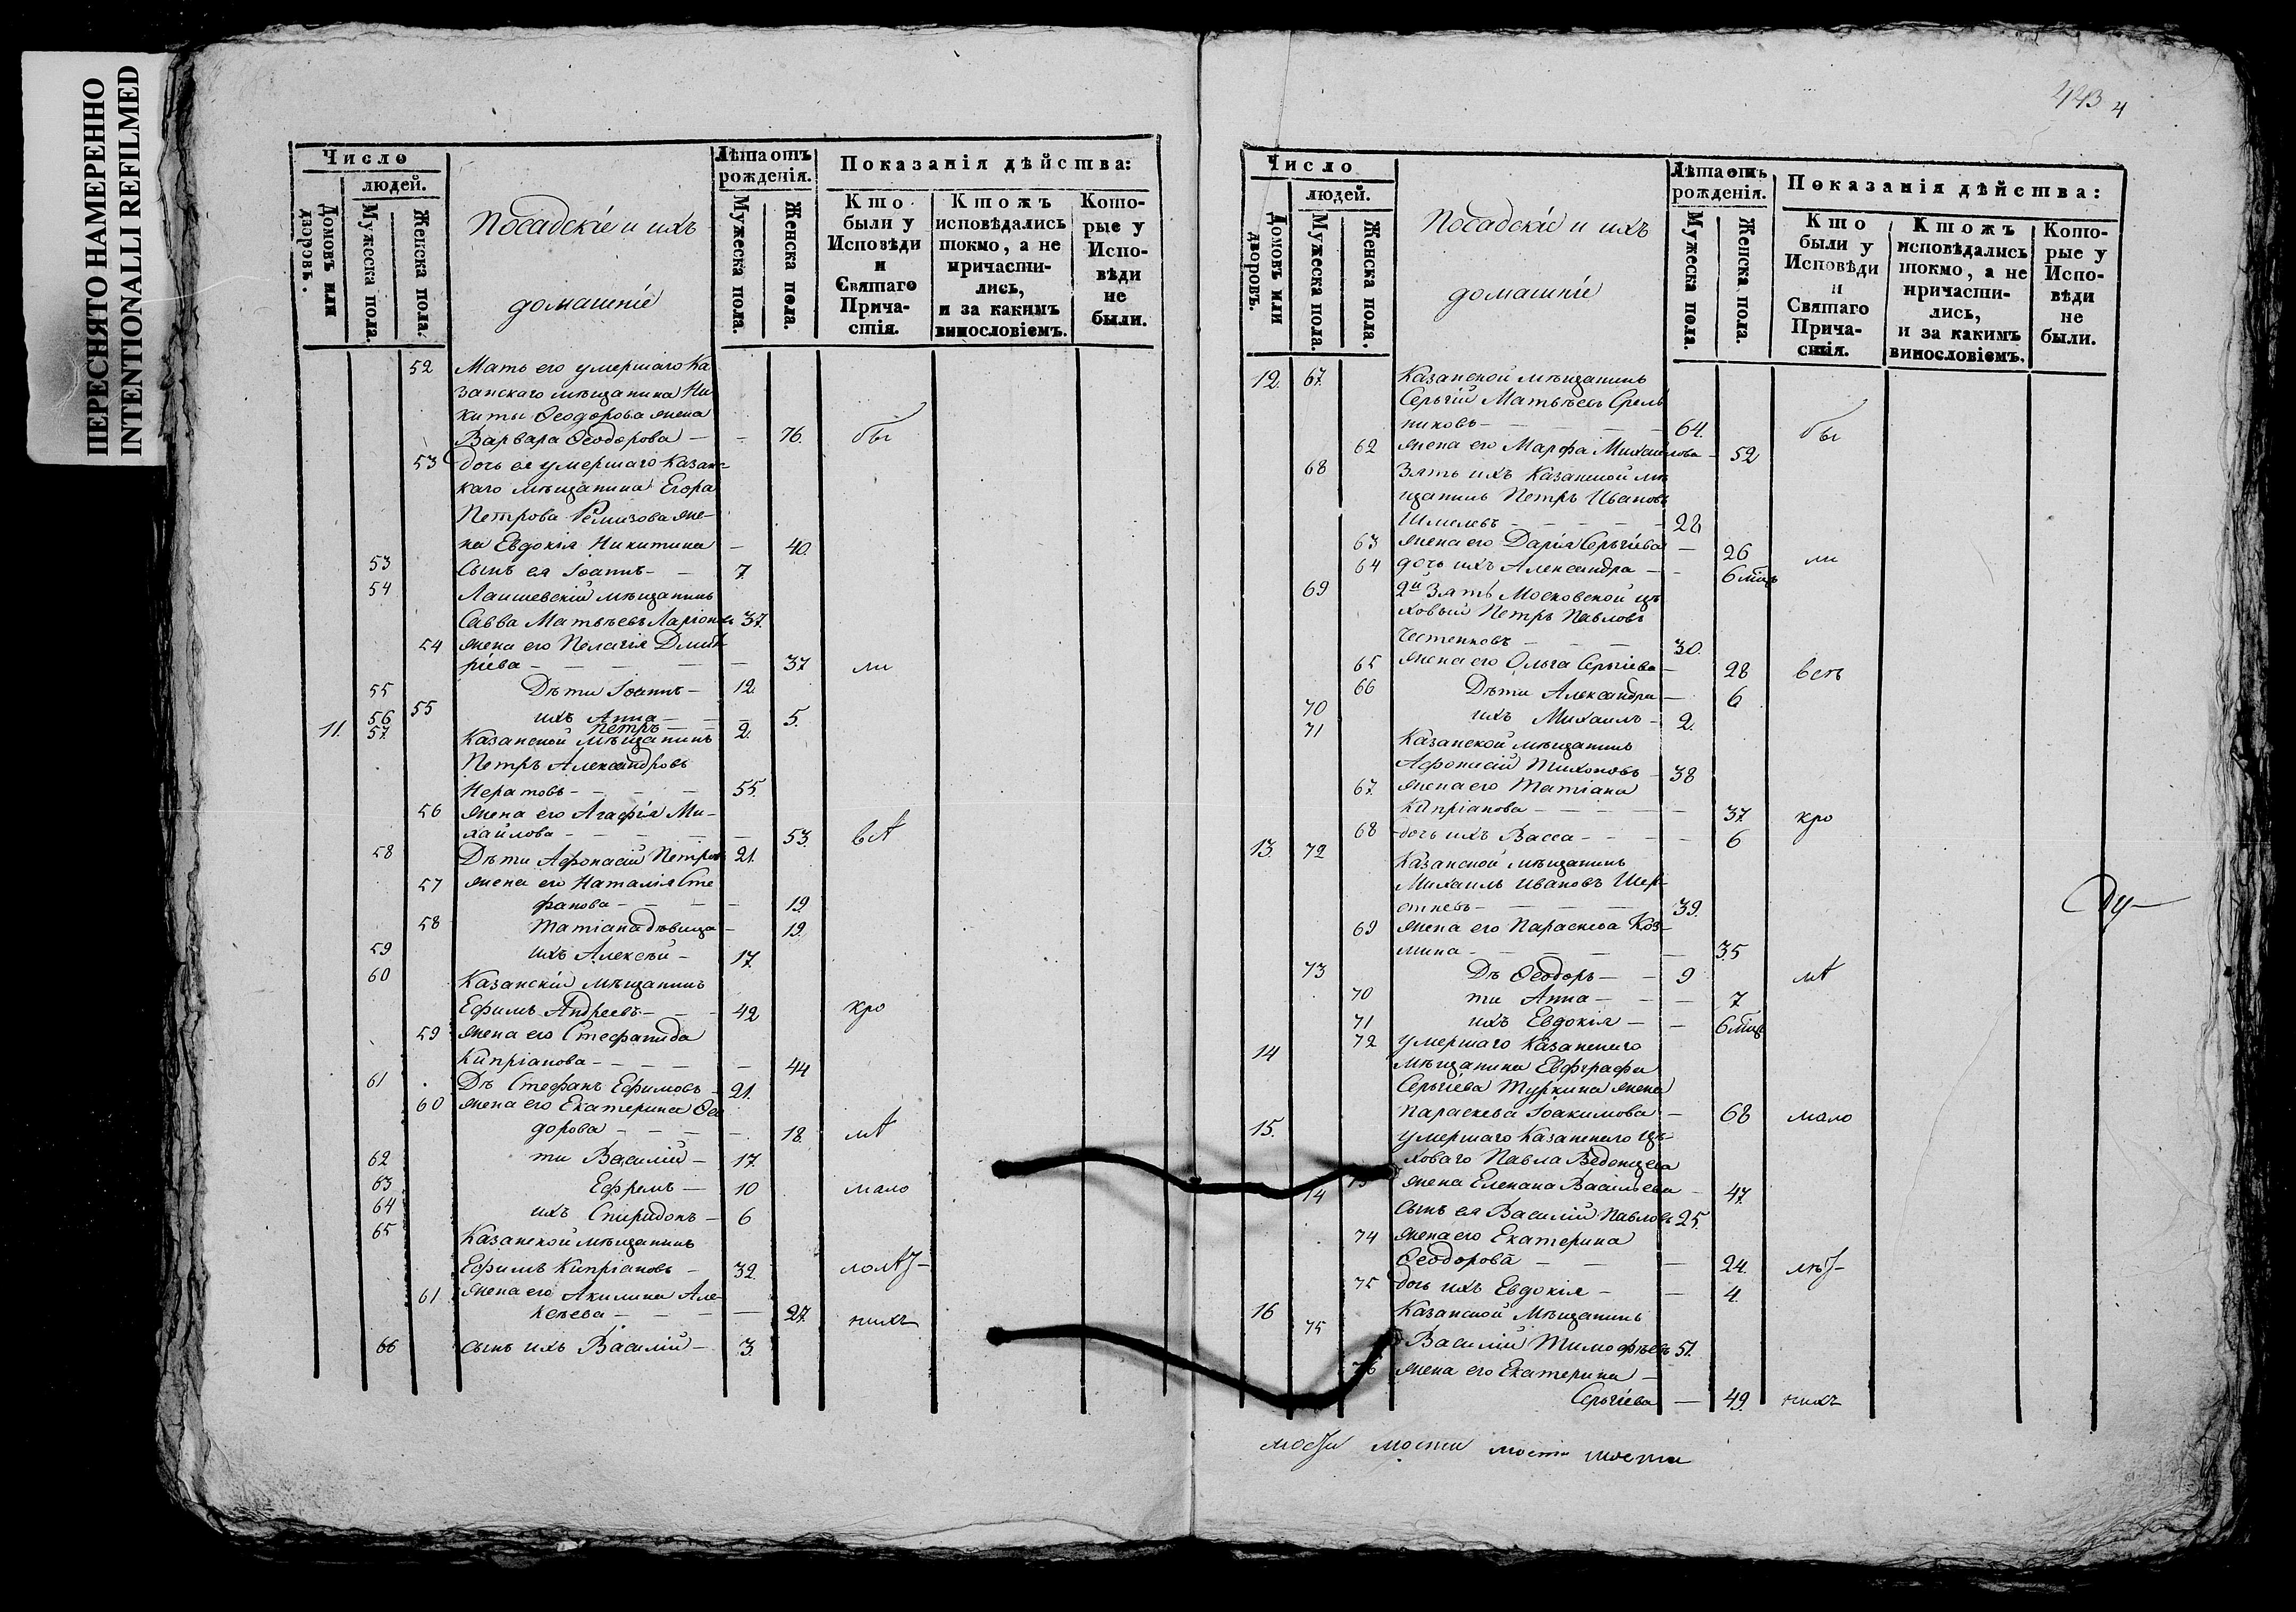 ПЕРЕСНЯТО НАМЕРЕННО
INTENTIONALLI REFILMED
Число
людей.
Домовъ или дворовъ.
Мужеска пола.
Женска пола.
Посадскіе и ихъ
домашніе
Лѣта отъ рожденія.
Мужеска пола.
Женска пола.
Показанія дѣйства:
Кто были у Исповѣди и Святаго Прича-стія.
Кто жъ исповѣдались токмо, а не причасти-лись, и за какимъ винословіемъ.
Кото-рые у Испо-вѣди не были.
52 Мать его умершаго Ка
занскаго мѣщанина Ни
киты Ѳеодорова жена
Варвара Ѳеодорова — — 76. бы
53 дочь ея умершаго Казанс
каго мѣщанина Егора
Петрова Ремизова же-
на Евдокія Никитина — 40.
53 Сынъ ея Іоаннъ — — 7.
54 Лаишевскій мѣщанинъ
Савва Матвѣевъ Ларіоновъ 37.
54 жена его Пелагія Дмит
ріева — — — — — 37 ли
55 Дѣти Іоаннъ — 12.
55 ихъ Анна — — — 5.
56 Петръ — — 2.
11. 57. Казанской мѣщанинъ
Петръ Александровъ
Нератовъ — — — — 55.
56 жена его Агафія Ми-
хайлова — — — — — 53. вст
58 Дѣти Афонасій Петровъ 21.
57 жена его Наталія Сте
фанова — — — — 19.
58 Татіана дѣвица — 19.
59 ихъ Алексѣй — 17.
60 Казанскій мѣщанинъ
Ефимъ Андреевъ — — — 42 кро
59 жена его Стефанида
Кипріанова — — — — — 44
61 Дѣ Стефанъ Ефимовъ — 21.
60 жена его Екатерина Ѳео
дорова — — — — 18. лѣт
62 ти Василій — 17.
63 Ефремъ — 10 мало
64 ихъ Спиридонъ — 6
65 Казанской мѣщанинъ
Ефимъ Кипріановъ — 32.
61 жена его Акилина Але-
ксѣева — — — — 27. нихъ
66 сынъ ихъ Василій — 3.
443 4
Число
людей.
Домовъ или дворовъ.
Мужеска пола.
Женска пола.
Посадскіе и ихъ
домашніе
Лѣта отъ рожденія.
Мужеска пола.
Женска пола.
Показанія дѣйства:
Кто были у Исповѣди и Святаго Прича-стія.
Кто жъ исповѣдались токмо, а не причасти-лись, и за какимъ винословіемъ.
Кото-рые у Испо-вѣди не были.
12. 67. Казанской мѣщанинъ
Сергій Матвѣевъ Срель
никовъ — — — — — 64. бы
62 жена его Марфа Михайлова — 52
68 Зять ихъ Казанской мѣ
щанинъ Петръ Ивановъ
Шмелевъ — — — — — 28
63 жена его Дарія Сергіева — 26 ли
64 дочь ихъ Александра — — 6 мцъ
69 2й Зять Московской це
ховый Петръ Павловъ
Честенковъ — — — 30.
65 жена его Ольга Сергіева — 28 всѣ
66 Дѣти Александра — 6
70 ихъ Михаилъ — 2.
71 Казанской мѣщанинъ
Афонасій Тихоновъ — 38
67. жена его Татіана
Кипріанова — — — — 37. кро
68 дочь ихъ Васса — — — — 6
13. 72 Казанской мѣщанинъ
Михаилъ Ивановъ Шер-
стневъ — — — — — 39.
69 жена его Параскева Коз-
мина — — — — — 35
73 Дѣ Ѳеодоръ — — 9 лѣт
70 ти Анна — — — 7
71 ихъ Евдокія — — 6 мцъ
14 72 умершаго Казанскаго
мѣщанина Евфграфа
Сергіева Туркина жена
Параскева Іоакимова — 68 мало
15. умершаго Казанскаго це-
ховаго Павла Веденцева
73 жена Елена Васильева — 47.
74 Сынъ ея Василій Павловъ 25.
74 жена его Екатерина
Ѳеодорова — — — 24.
75 дочь ихъ Евдокія — — 4.
16 75 Казанской мѣщанинъ
Василій Тимофѣевъ 51.
76 жена его Екатерина —
Сергіева — 49. нихъ
Ду—
мости мости мости